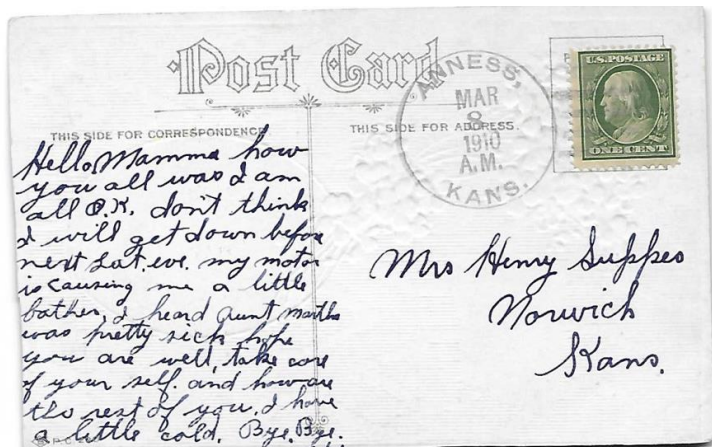 Post Card
THIS SIDE FOR CORRESPONDENCE
THIS SIDE FOR ADDRESS.
ANNESS,
MAR
8
1910
A.M.
KANS.
U.S. POSTAGE
ONE CENT
Hello Mamma how
you all was I am
all O.K. don't think
I will get down before
next Sat. eve. my motor
is causing me a little
bather, I heard aunt martha
was pretty sick hope
you are well, take care
of your self. and how are
the rest of you, I have
a little cold. Bye. Bye.
Mrs Henry Suppes
Norwich
Kans.